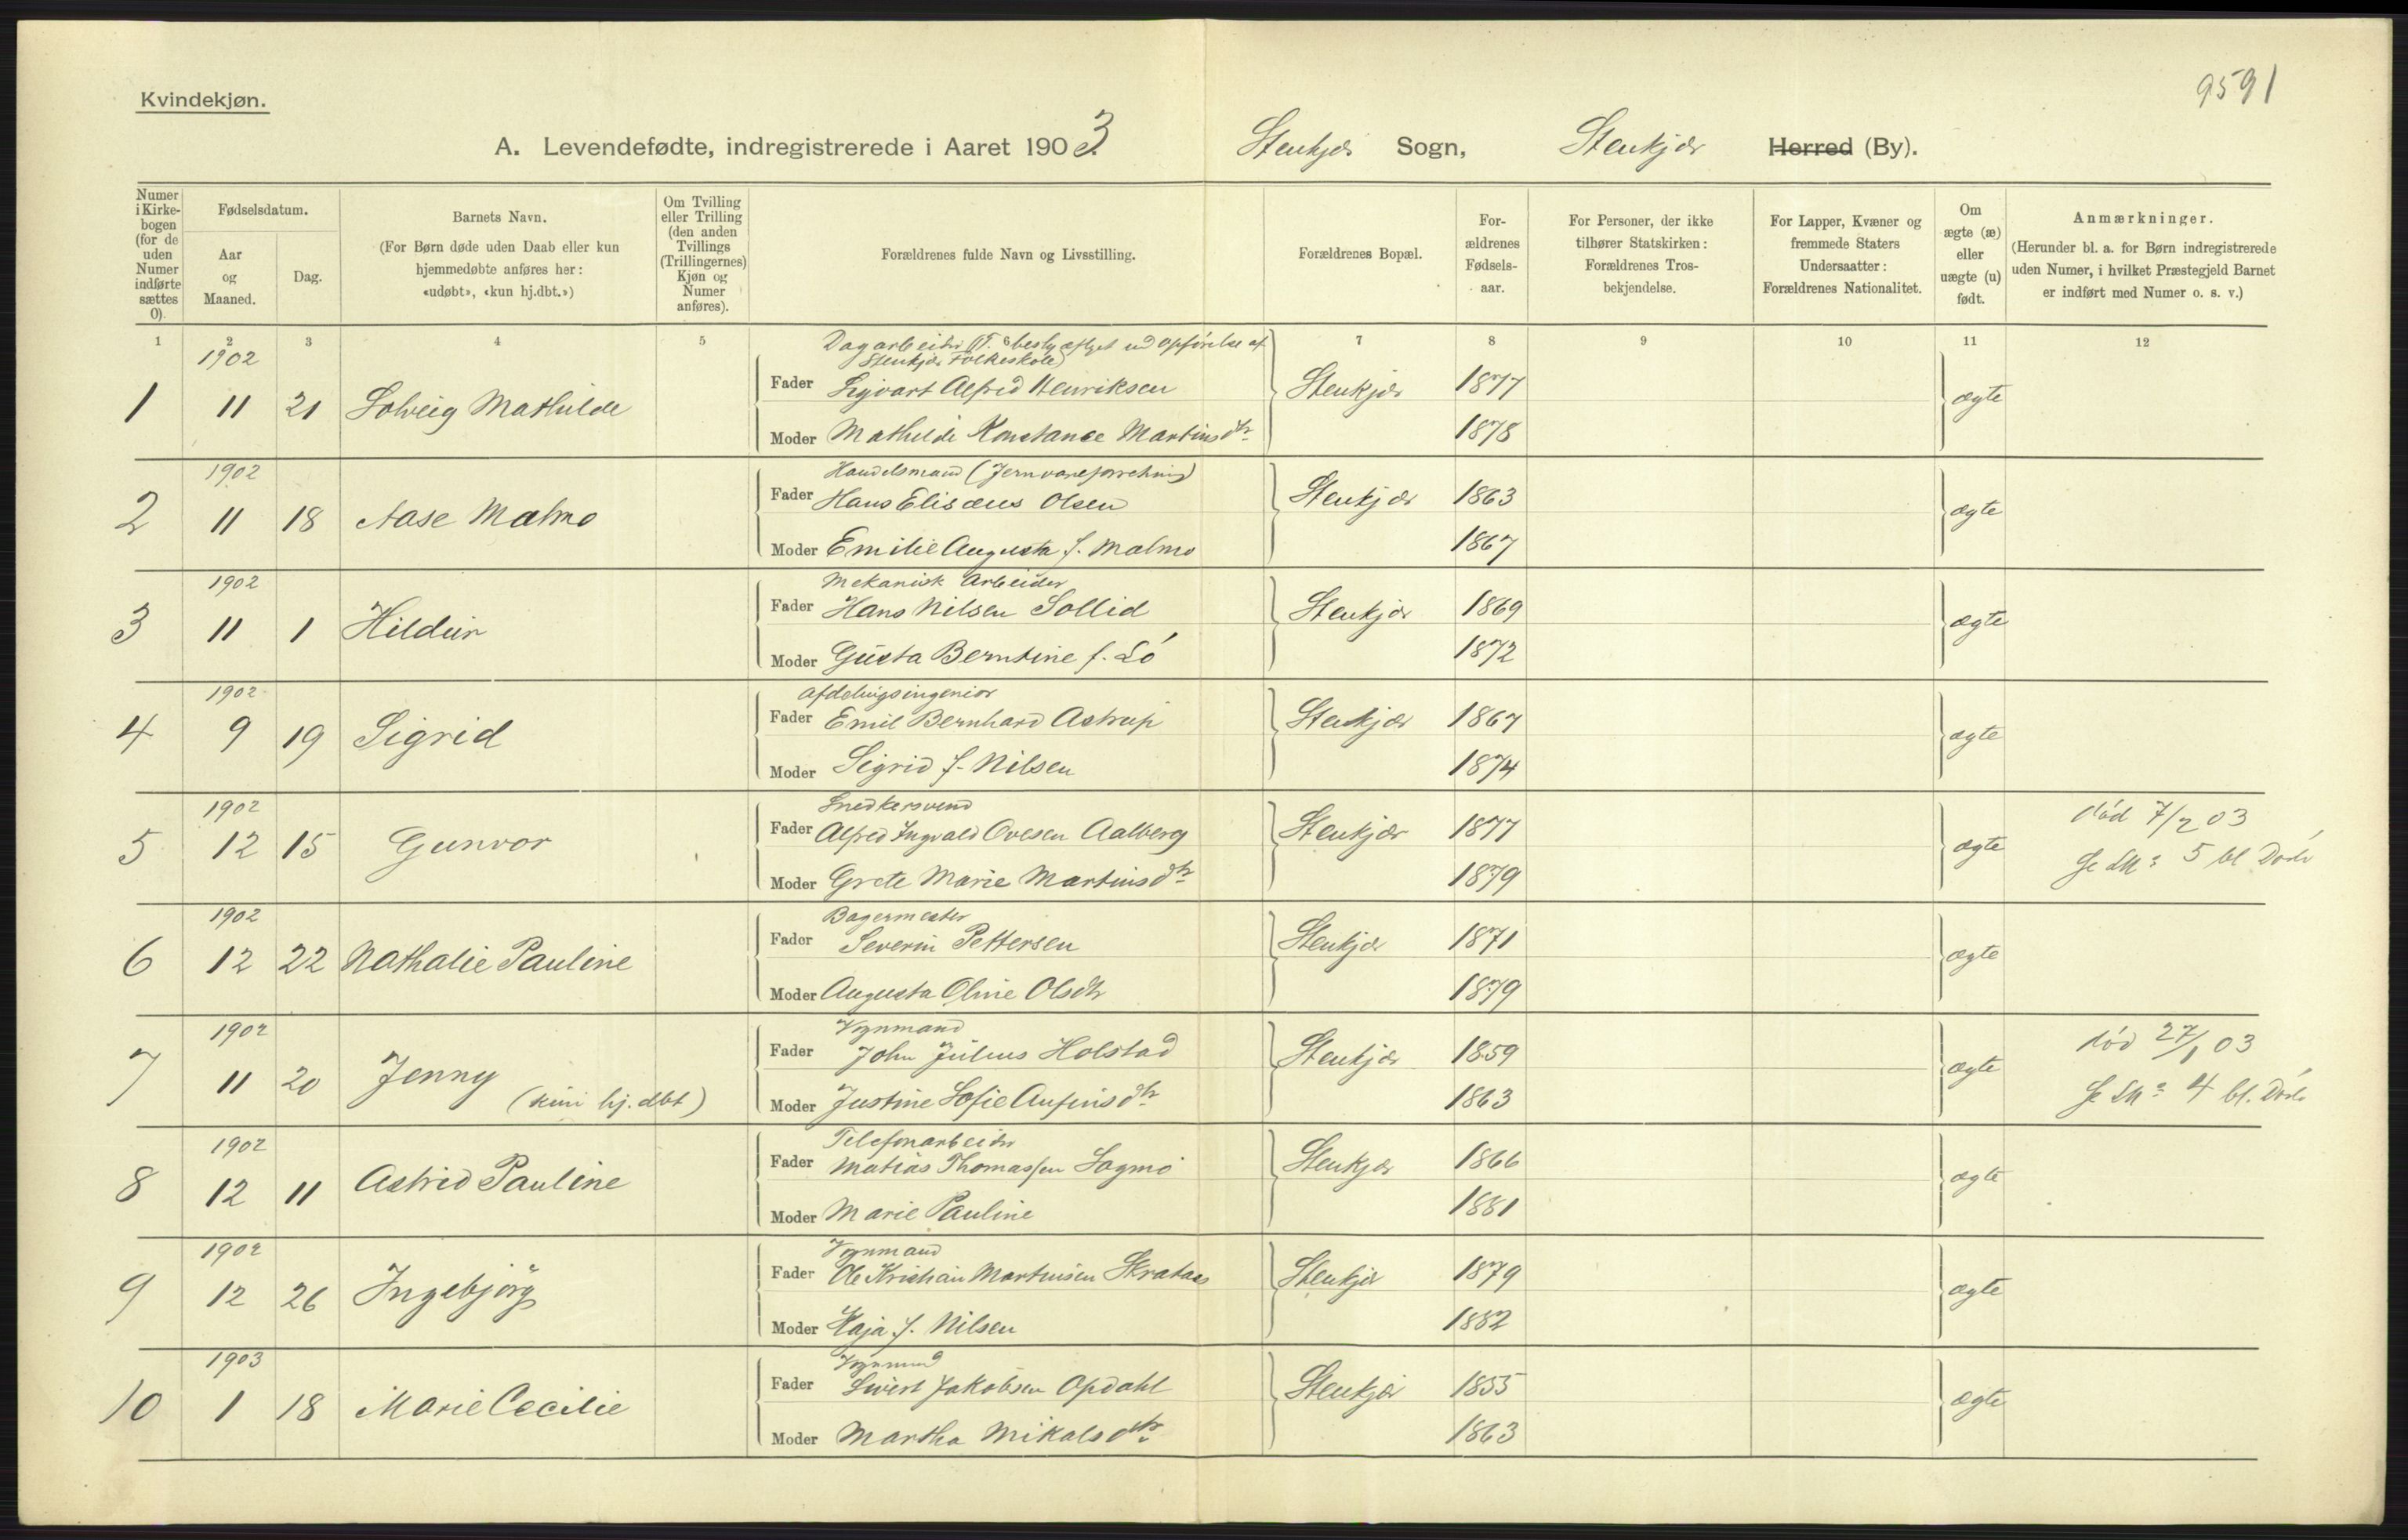 9591
Kvindekjøn.
A. Levendefødte, indregistrerede i Aaret 1903. Stenkjær Sogn, Stenkjær Herred (By).
Numer i Kirkebogen (for de uden Numer indførte sættes 0).
Fødselsdatum.
Aar og Maaned.
Dag.
Barnets Navn.
(For Børn døde uden Daab eller kun hjemmedøbte anføres her: «udøbt», «kun hj.dbt.»)
Om Tvilling eller Trilling (den anden Tvillings (Trillingernes) Kjøn og Numer anføres).
Forældrenes fulde Navn og Livsstilling.
Forældrenes Bopæl.
Forældrenes Fødselsaar.
For Personer, der ikke tilhører Statskirken: Forældrenes Trosbekjendelse.
For Lapper, Kvæner og fremmede Staters Undersaatter: Forældrenes Nationalitet.
Om ægte (æ) eller uægte (u) født.
Anmærkninger.
(Herunder bl. a. for Børn indregistrerede uden Numer, i hvilket Præstegjeld Barnet er indført med Numer o. s. v.)
1 2 3 4 5 6 7 8 9 10 11 12
1902 Dagarbeider (T. beskjæftiget ved Opførelse af
Stenkjær Folkeskole)
1 11 21 Solveig Mathilde Fader Sigvart Alfred Henriksen Stenkjær 1877 ægte
Moder Mathilde Konstance Martinsdtr 1878
1902 Handelsmand (Jernvareforretning)
2 11 18 Aase Malmo Fader Hans Elisæus Olsen Stenkjær 1863 ægte
Moder Emilie Augusta f. Malmo 1867
1902 Mekanisk Arbeider
3 11 1 Hildur Fader Hans Nilsen Sollid Stenkjær 1869 ægte
Moder Gusta Berntine f. Lø 1872
1902 Afdelingsingeniør
4 9 19 Sigrid Fader Emil Bernhard Astrup Stenkjær 1867 ægte
Moder Sigrid f. Nilsen 1874
1902 Snedkersvend
5 12 15 Gunvor Fader Alfred Ingvald Ovesen Aalberg Stenkjær 1877 ægte død 7/2 03
Moder Grete Marie Martinsdtr 1879 Se LNo 5 bl Døde
1902 Bagermester
6 12 22 Nathalie Pauline Fader Severin Pettersen Stenkjær 1871 ægte
Moder Augusta Oline Olsdtr 1879
1902 Vognmand
7 11 20 Jenny (kun hj. dbt) Fader John Julius Holstad Stenkjær 1859 ægte død 27/1 03
Moder Justine Sofie Anfinsdtr 1863 Se LNo 4 bl. Døde
1902 Telefonarbeider
8 12 11 Astrid Pauline Fader Matias Thomassen Sagmo Stenkjær 1866 ægte
Moder Marie Pauline 1881
1902 Vognmand
9 12 26 Ingebjørg Fader Ole Kristian Martinsen Stenkjær 1879 ægte
Moder Kaja f. Nilsen 1882
1903 Vognmand
10 1 18 Marie Cecilie Fader Sivert Jakobsen Opdahl Stenkjær 1855 ægte
Moder Martha Mikalsdtr 1863